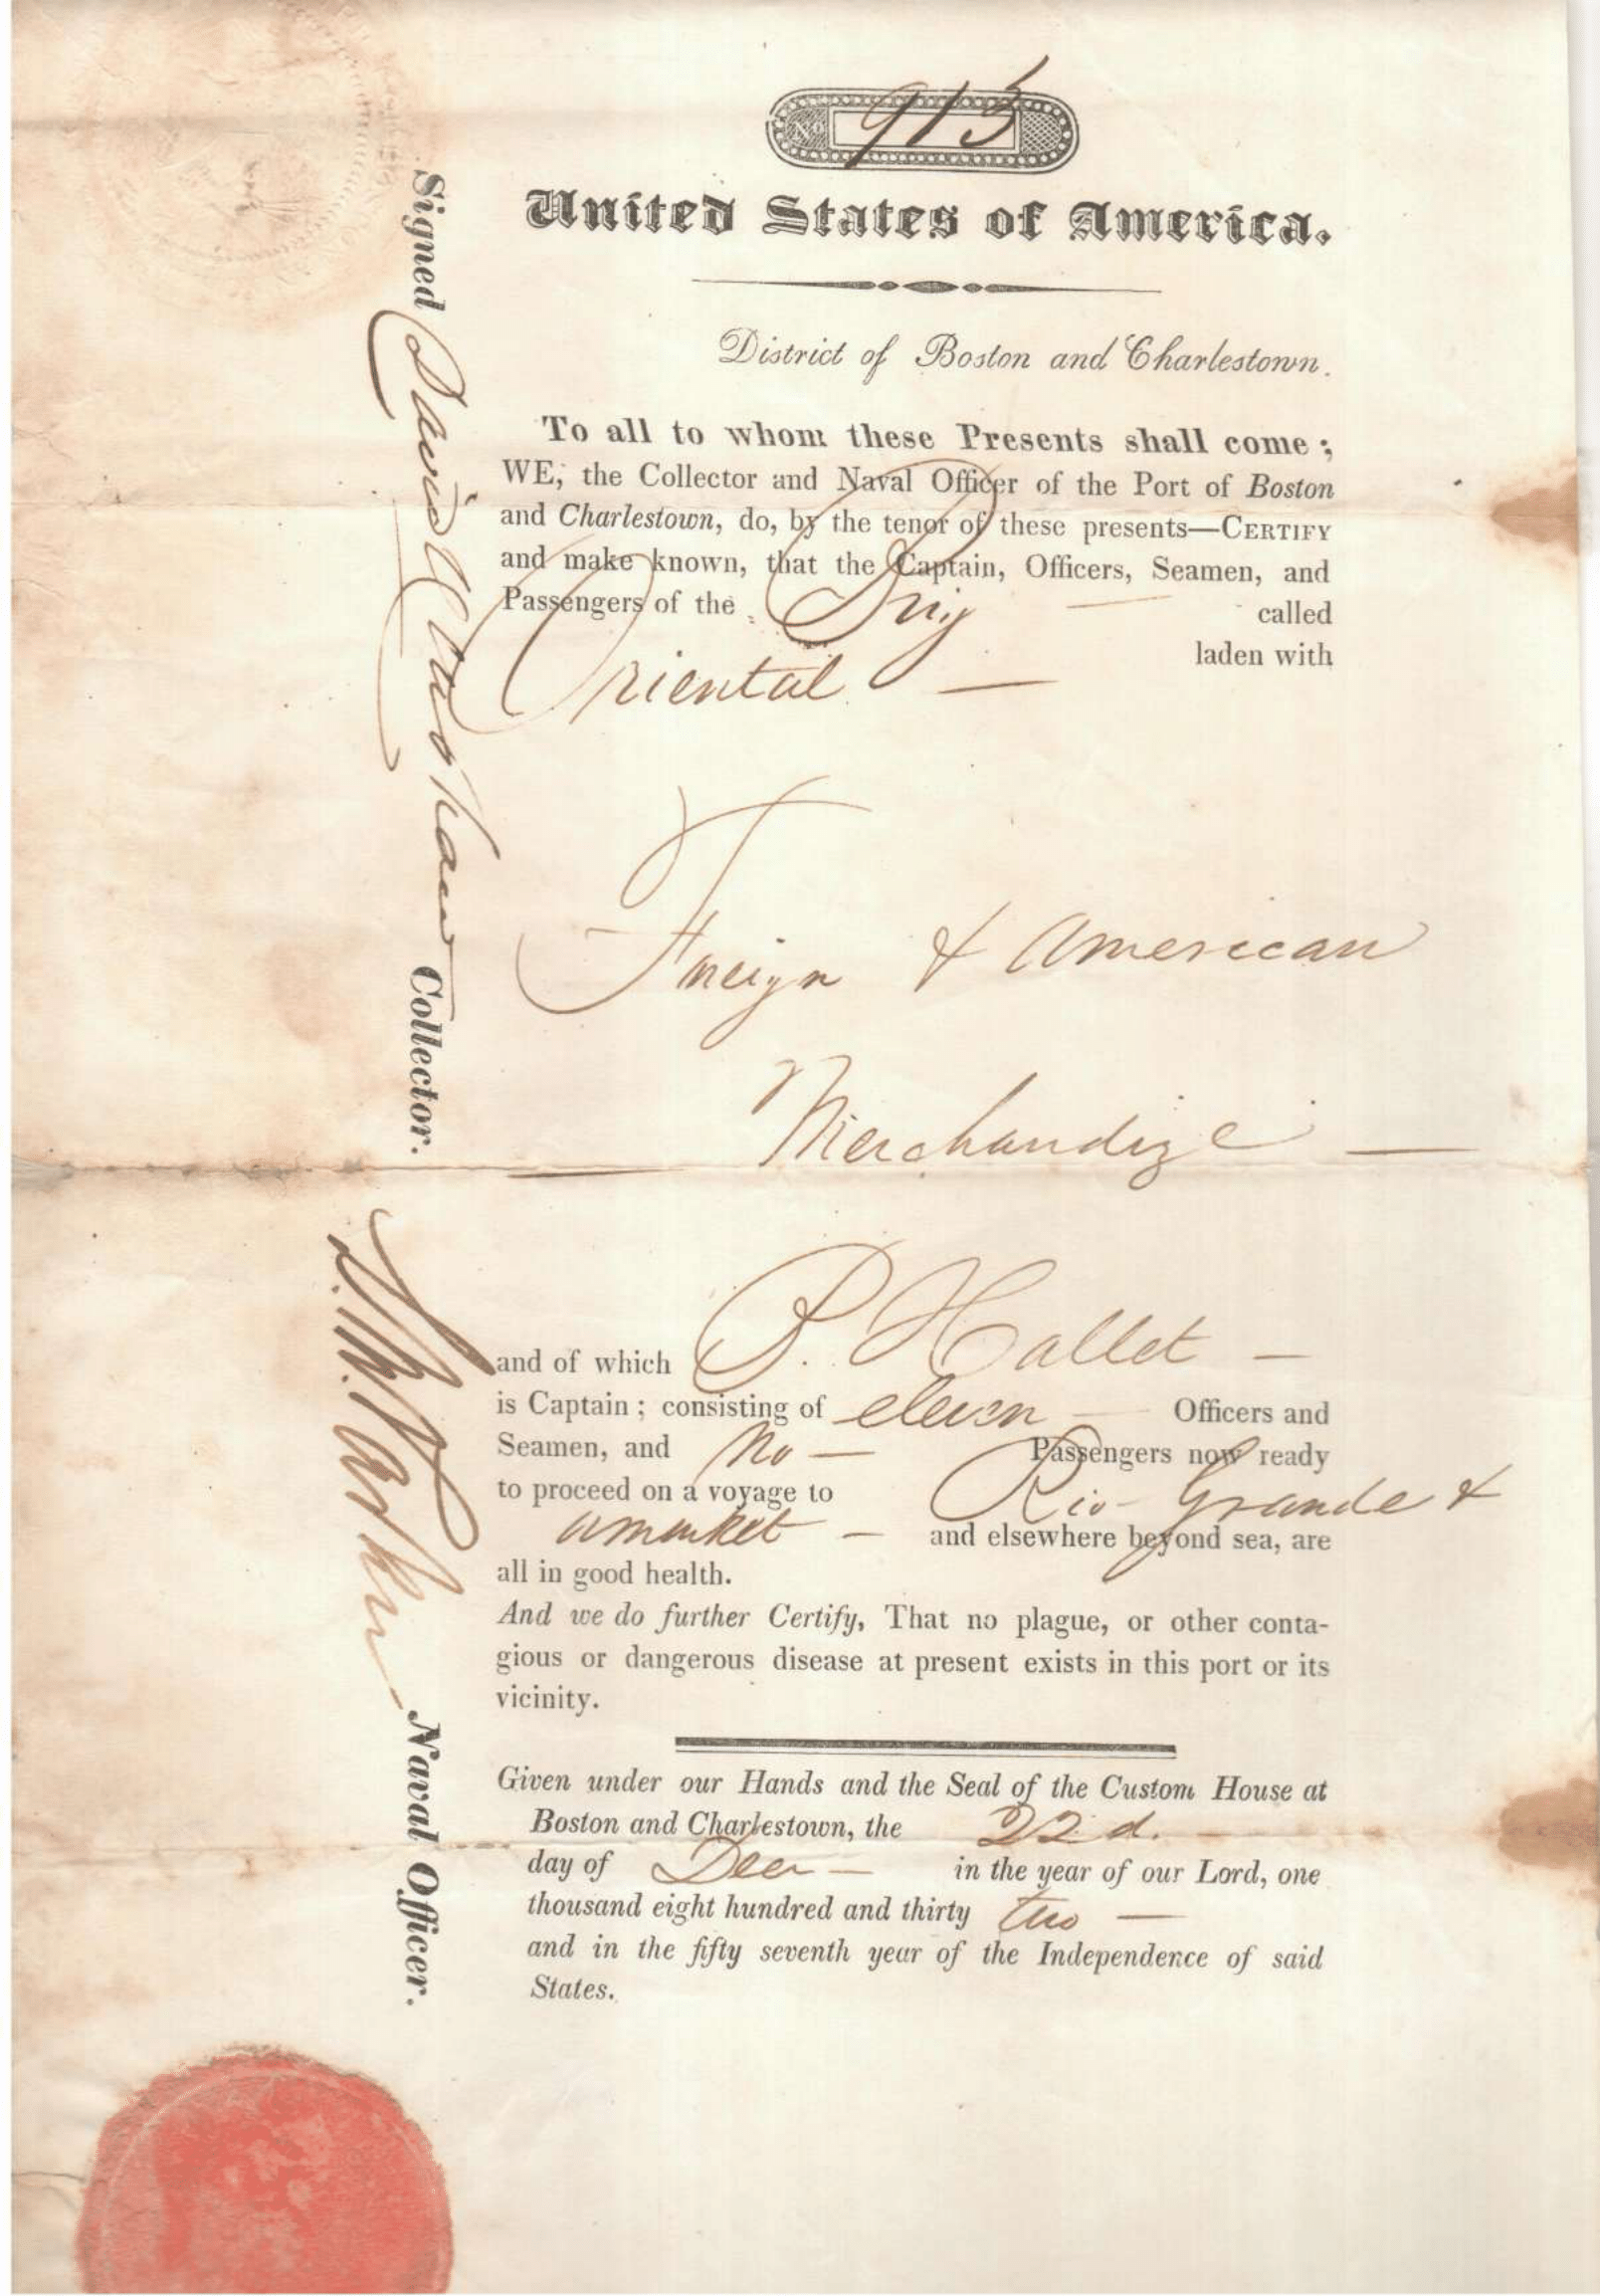 No 913
United States of America.
District of Boston and Charlestown.
To all to whom these Presents shall come;
WE, the Collector and Naval Officer of the Port of Boston
and Charlestown, do, by the tenor of these presents—CERTIFY
and make known, that the Captain, Officers, Seamen, and
Passengers of the Brig — called
Oriental — laden with
Foreign & American
Merchandize —
and of which P. Hallet —
is Captain; consisting of eleven — Officers and
Seamen, and No — Passengers now ready
to proceed on a voyage to Rio Grande &
a market — and elsewhere beyond sea, are
all in good health.
And we do further Certify, That no plague, or other conta-
gious or dangerous disease at present exists in this port or its
vicinity.
Given under our Hands and the Seal of the Custom House at
Boston and Charlestown, the 22d. —
day of Decr — in the year of our Lord, one
thousand eight hundred and thirty two —
and in the fifty seventh year of the Independence of said
States.
Signed David Henshaw Collector.
Naval Officer.